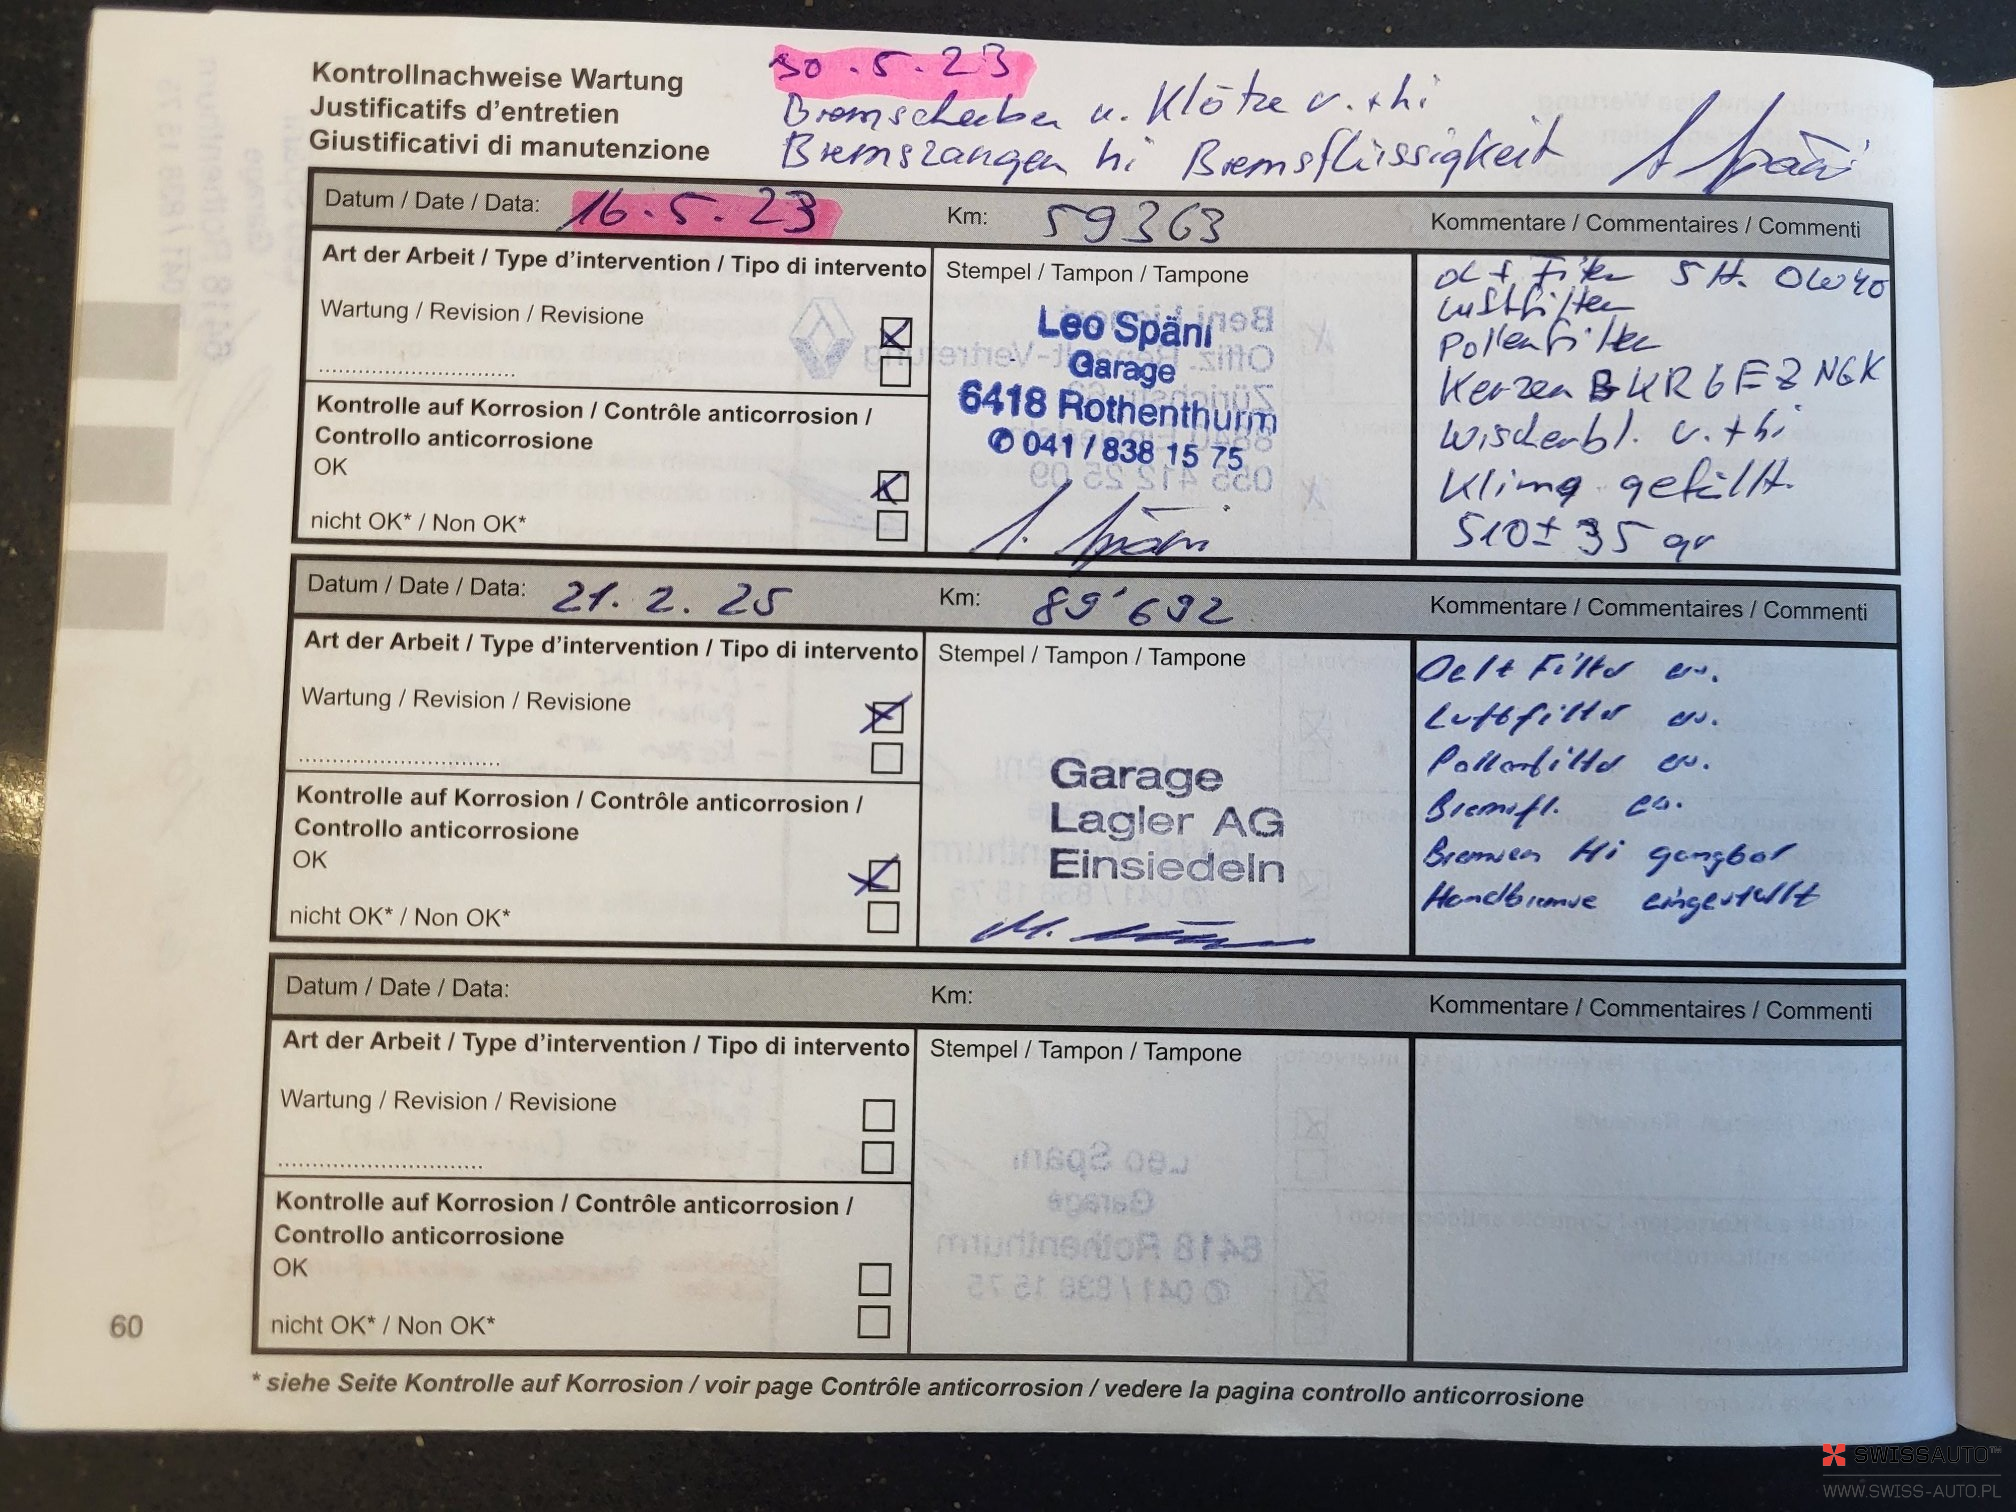 Kontrollnachweise Wartung
Justificatifs d'entretien
Giustificativi di manutenzione
30.5.23
Bremscheiben u. Klötze v. + hi
Bremszangen hi Bremsflüssigkeit
Datum / Date / Data: 16.5.23 Km: 59363 Kommentare / Commentaires / Commenti
Art der Arbeit / Type d'intervention / Tipo di intervento
Wartung / Revision / Revisione
Kontrolle auf Korrosion / Contrôle anticorrosion /
Controllo anticorrosione
OK
nicht OK* / Non OK*
Stempel / Tampon / Tampone
Leo Späni
Garage
6418 Rothenthurm
✆ 041 / 838 15 75
öl + Filter 5 lt. 0W40
Luftfilter
Pollenfilter
Kerzen BKR6EZ NGK
Wischerbl. v. + hi
Klima gefüllt.
510 ± 35 gr
Datum / Date / Data: 21.2.25 Km: 89'692 Kommentare / Commentaires / Commenti
Art der Arbeit / Type d'intervention / Tipo di intervento
Wartung / Revision / Revisione
Kontrolle auf Korrosion / Contrôle anticorrosion /
Controllo anticorrosione
OK
nicht OK* / Non OK*
Stempel / Tampon / Tampone
Garage
Lagler AG
Einsiedeln
Oel + Filter er.
Luftfilter er.
Pollenfilter er.
Bremsfl. er.
Bremsen Hi gangbar
Handbremse eingestellt
Datum / Date / Data: Km: Kommentare / Commentaires / Commenti
Art der Arbeit / Type d'intervention / Tipo di intervento
Wartung / Revision / Revisione
Kontrolle auf Korrosion / Contrôle anticorrosion /
Controllo anticorrosione
OK
nicht OK* / Non OK*
Stempel / Tampon / Tampone
60
* siehe Seite Kontrolle auf Korrosion / voir page Contrôle anticorrosion / vedere la pagina controllo anticorrosione
SWISSAUTO™
WWW.SWISS-AUTO.PL